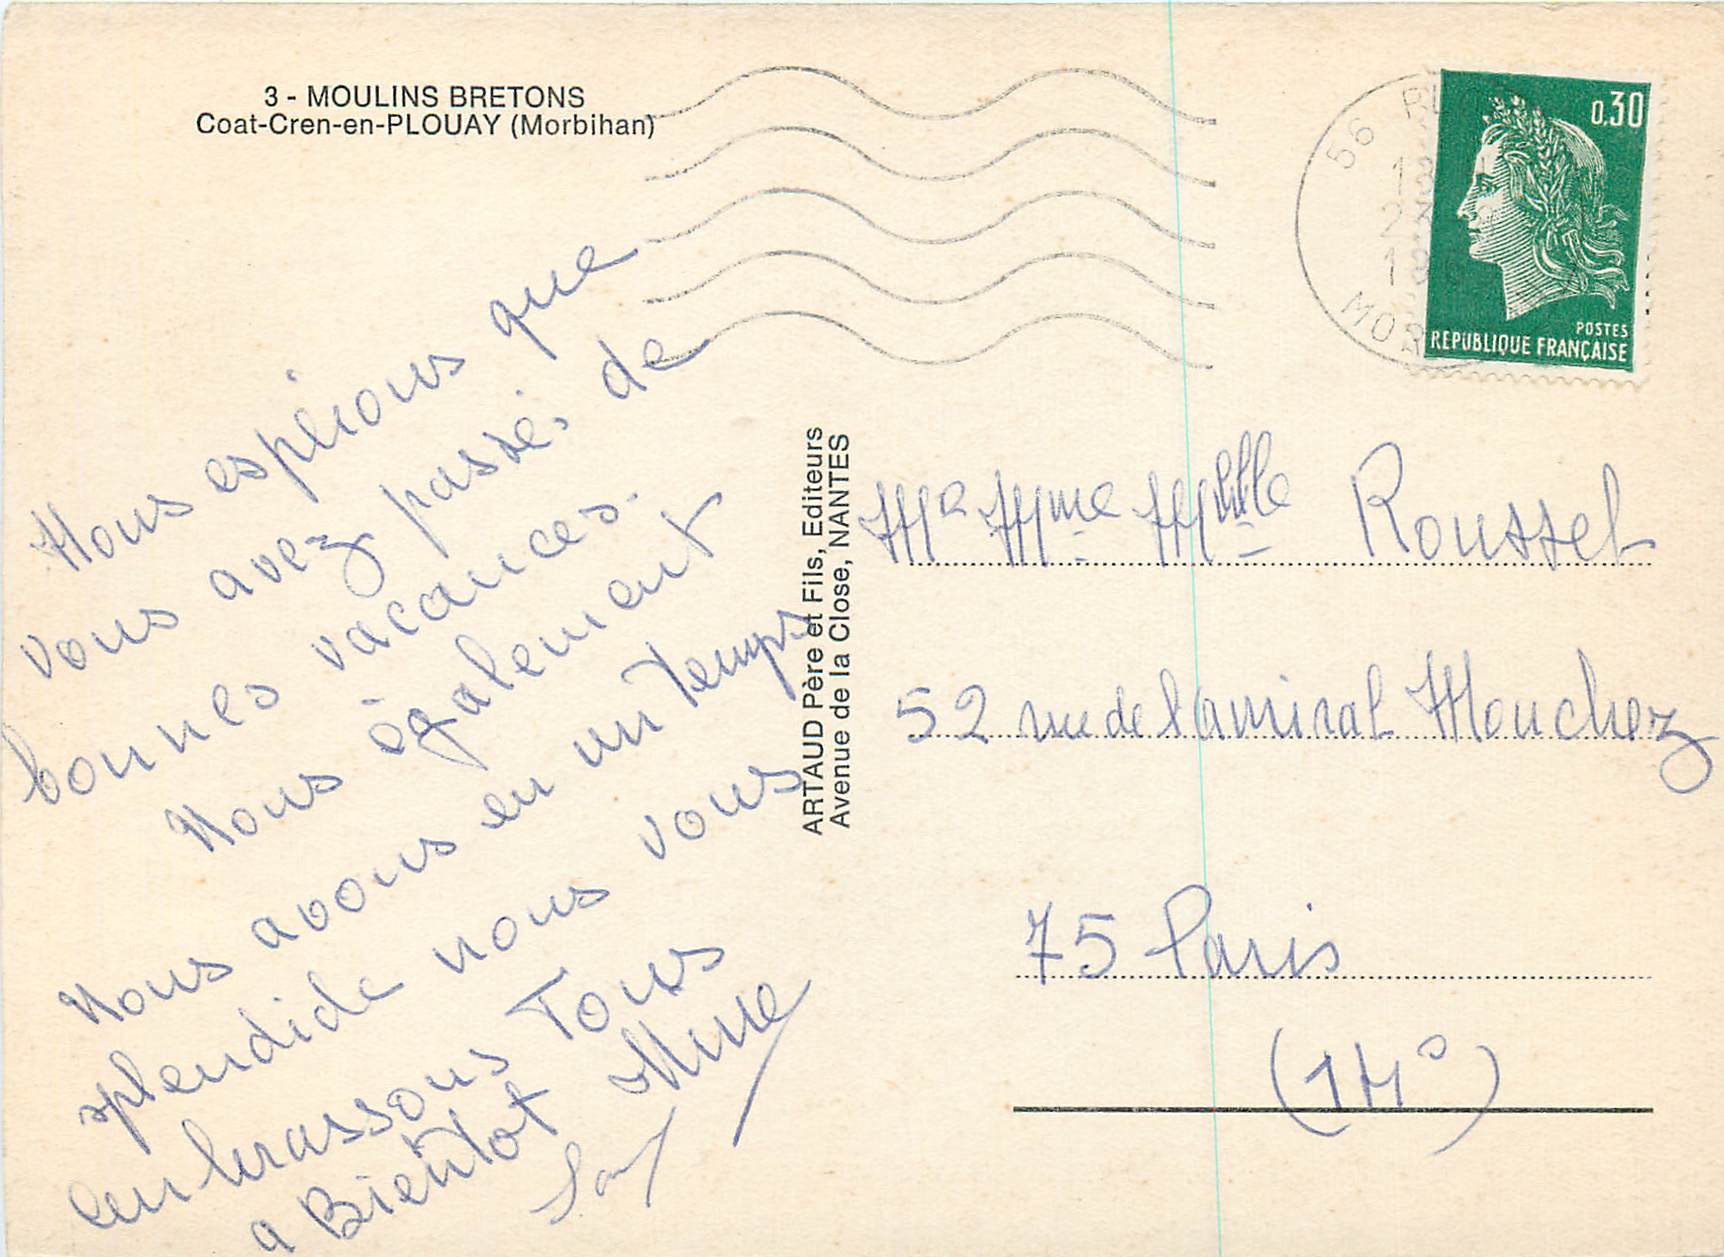 3 - MOULINS BRETONS
Coat-Cren-en-PLOUAY (Morbihan)
56
MOR
0,30
POSTES
REPUBLIQUE FRANÇAISE
Nous espérons que
vous avez passé, de
bonnes vacances.
Nous également
Nous avons eu un temps
splendide nous vous
embrassons Tous
a Bientot
ARTAUD Père et Fils, Editeurs
Avenue de la Close, NANTES
Mr Mme Mlle Roussel
52 rue de l'amiral Mouchez
75 Paris
(14°)